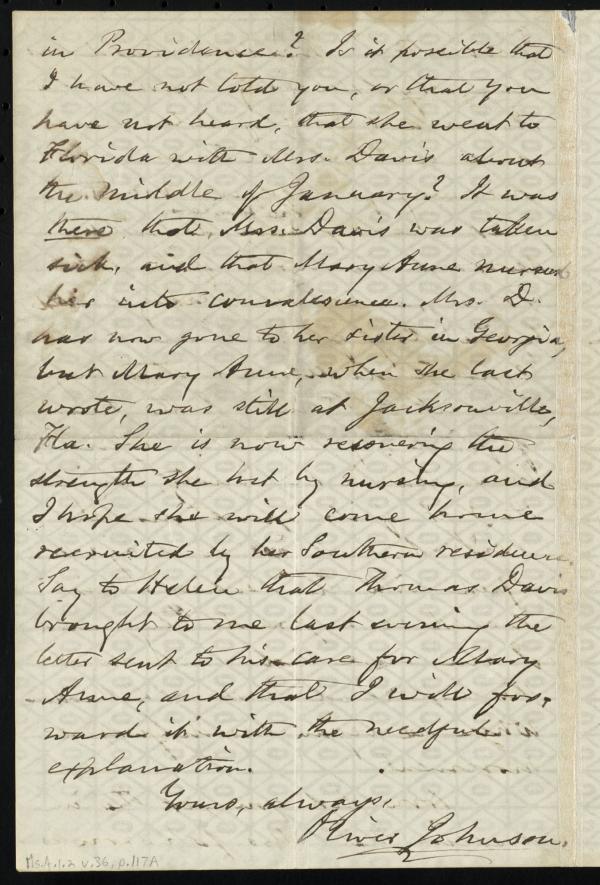 in Providence? Is it possible that
I have not told you, or that you
have not heard, that she went to
Florida with Mrs. Davis about
the middle of January? It was
there that Mrs. Davis was taken
sick, and that Mary Anne nursed
her into convalescence. Mrs. D.
has now gone to her sister in Georgia,
but Mary Anne, when she last
wrote, was still at Jacksonville,
Fla. She is now recovering the
strength she lost by nursing, and
I hope she will come home
recruited by her Southern residence.
Say to Helen that Thomas Davis
brought to me last evening the
letter sent to his care for Mary
Anne, and that I will for-
ward it with the needful
explanation.
Yours, always,
Oliver Johnson.
Ms.A.1.2 v.36, p.117A